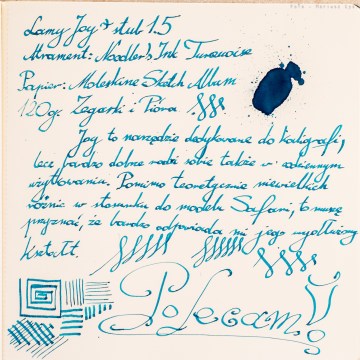 Lamy Joy * stub 1.5
Atrament: Noodler's Ink Turquoise
Papier: Moleskine Sketch Album
120g. Zegarki i Pióra
Joy to narzędzie dedykowane do kaligrafi,
lecz bardzo dobrze radzi sobie także w codziennym
użytkowaniu. Pomimo teoretycznie niewielkich
różnic w stosunku do modelu Safari, to muszę
przyznać, że bardzo odpowiada mi jego wydłużony
kształt.
Polecam!